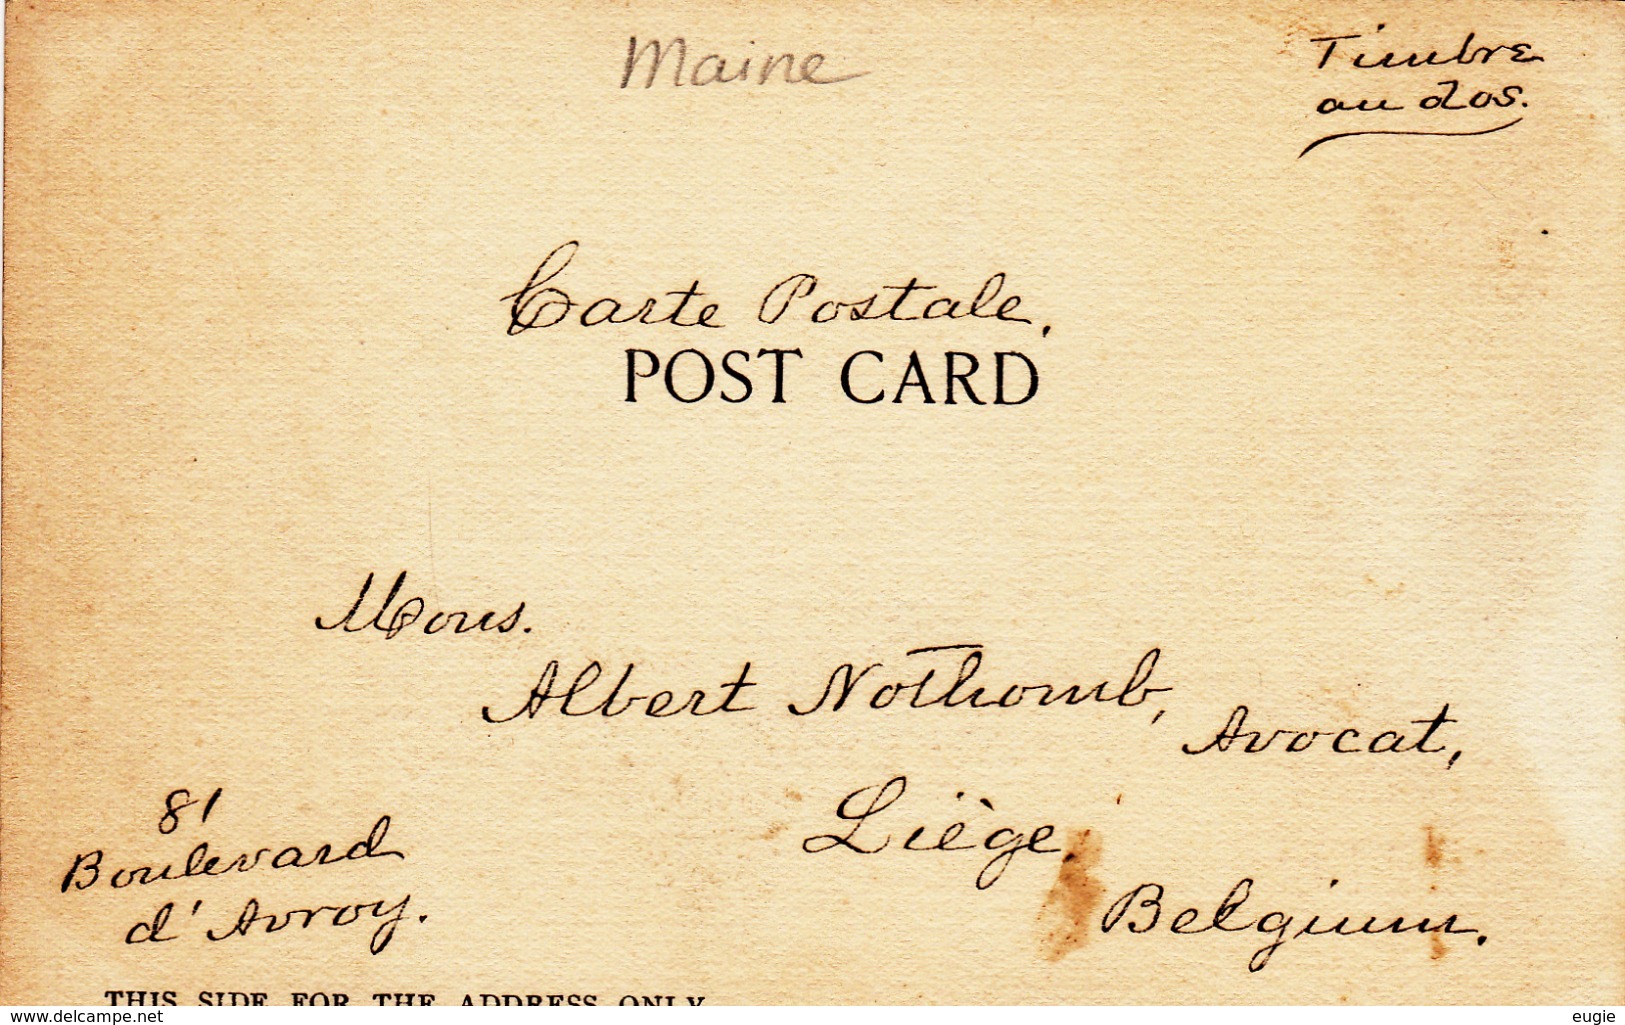 Maine
Timbre
au dos.
Carte Postale.
POST CARD
Mons.
Albert Nothomb,
Avocat,
Liège
Belgium.
81
Boulevard
d'Avroy.
THIS SIDE FOR THE ADDRESS ONLY
www.delcampe.net
eugie